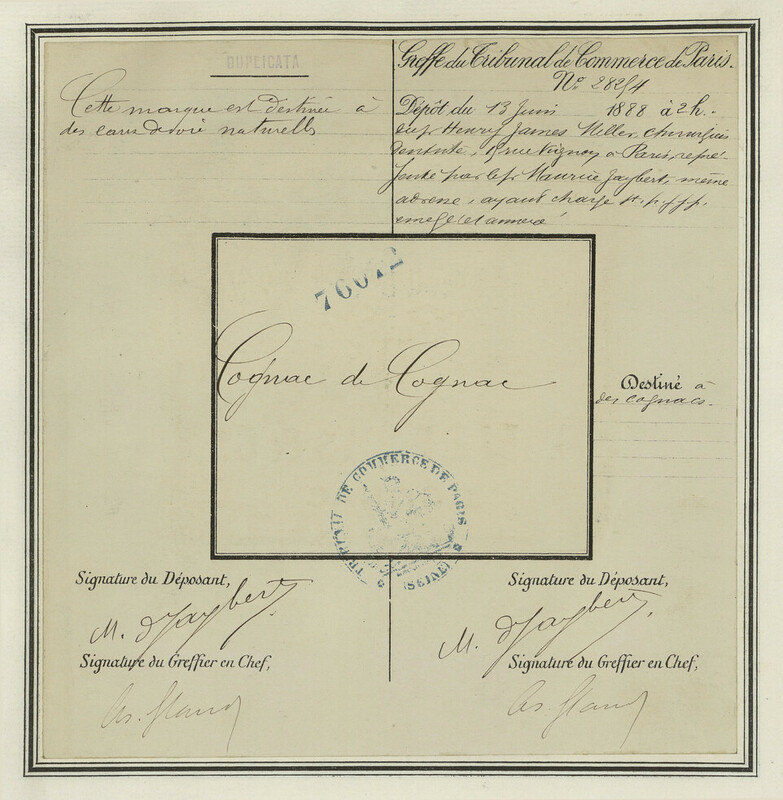 DUPLICATA
Cette marque est destinée à
des eaux de vie naturelles
Greffe du Tribunal de Commerce de Paris.
N° 28254
Dépôt du 13 Juin 1888 à 2 h.
Henry James Miller, chirurgien
dentiste, rue Vignon, à Paris, repré-
senté par le sr Maurice Jaybert, même
adresse, ayant charge
76072
Cognac de Cognac
Destiné à
des cognacs.
TRIBUNAL DE COMMERCE DE PARIS
(SEINE)
Signature du Déposant,
M. d'Jaybert
Signature du Greffier en Chef,
Signature du Déposant,
M. d'Jaybert
Signature du Greffier en Chef,